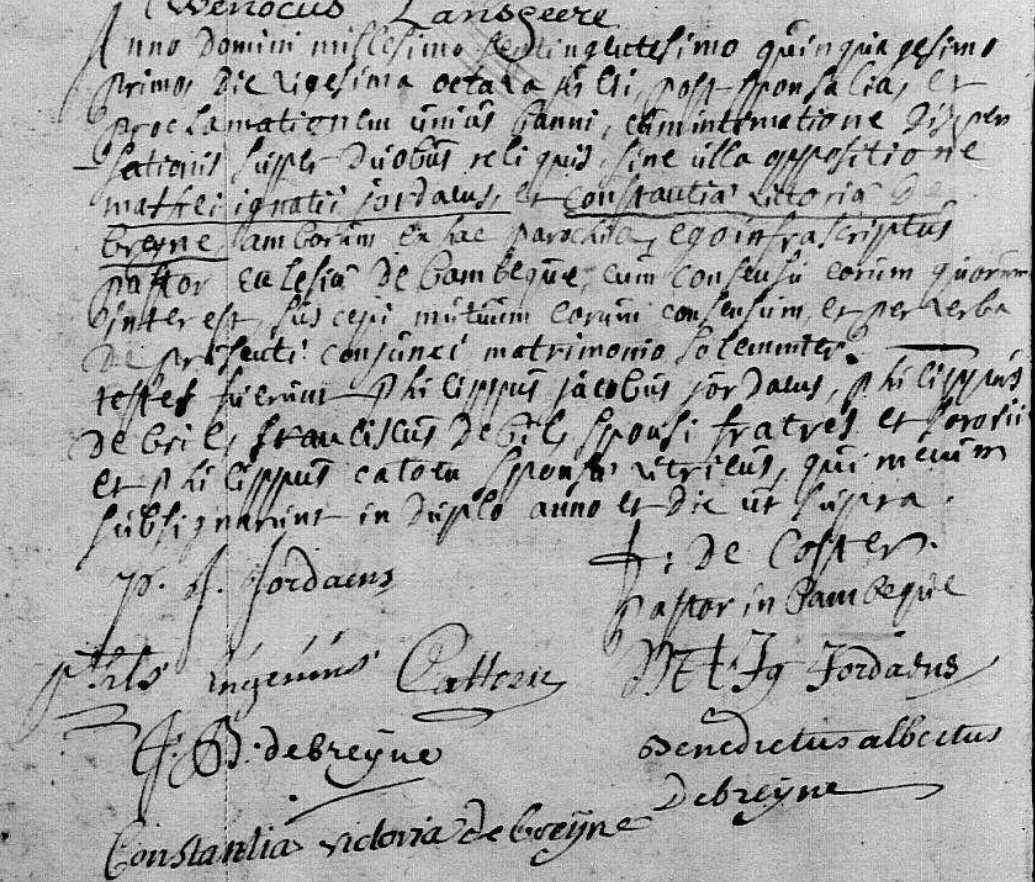 Wenocus Lansgeere
Anno Domini millesimo septingentesimo quinquagesimo
primo, Die vigesima octava julii, post sponsalia, et
proclamationem unius banni, cum intimatione dispen
-sationis super duobus reliquis, sine ulla oppositione
matthei ignatii jordaens, et Constantia victoria De
breyne, amborum ex hac parochia, ego infrascriptus
pastor ecclesia De bambeque, cum consensu eorum quorum
interest, suscepi mutuum eorum consensum, et per verba
De presenti conjunxi matrimonio solemniter.
testes fuerunt philippus jacobus jordaens, philippus
De bril, franciscus De bril, sponsi fratres et sororii
et philippus catoen sponsa vitricus, qui mecum
subsignarunt in duplo anno et die ut supra.
J: De Coster.
p. J. Jordaens
pastor in Bambeque
Ingenuus Cattoen
Mt Ig Jordaens
J. B. debreyne
Benedictus albertus
Debreyne
Constantia victoria de breyne